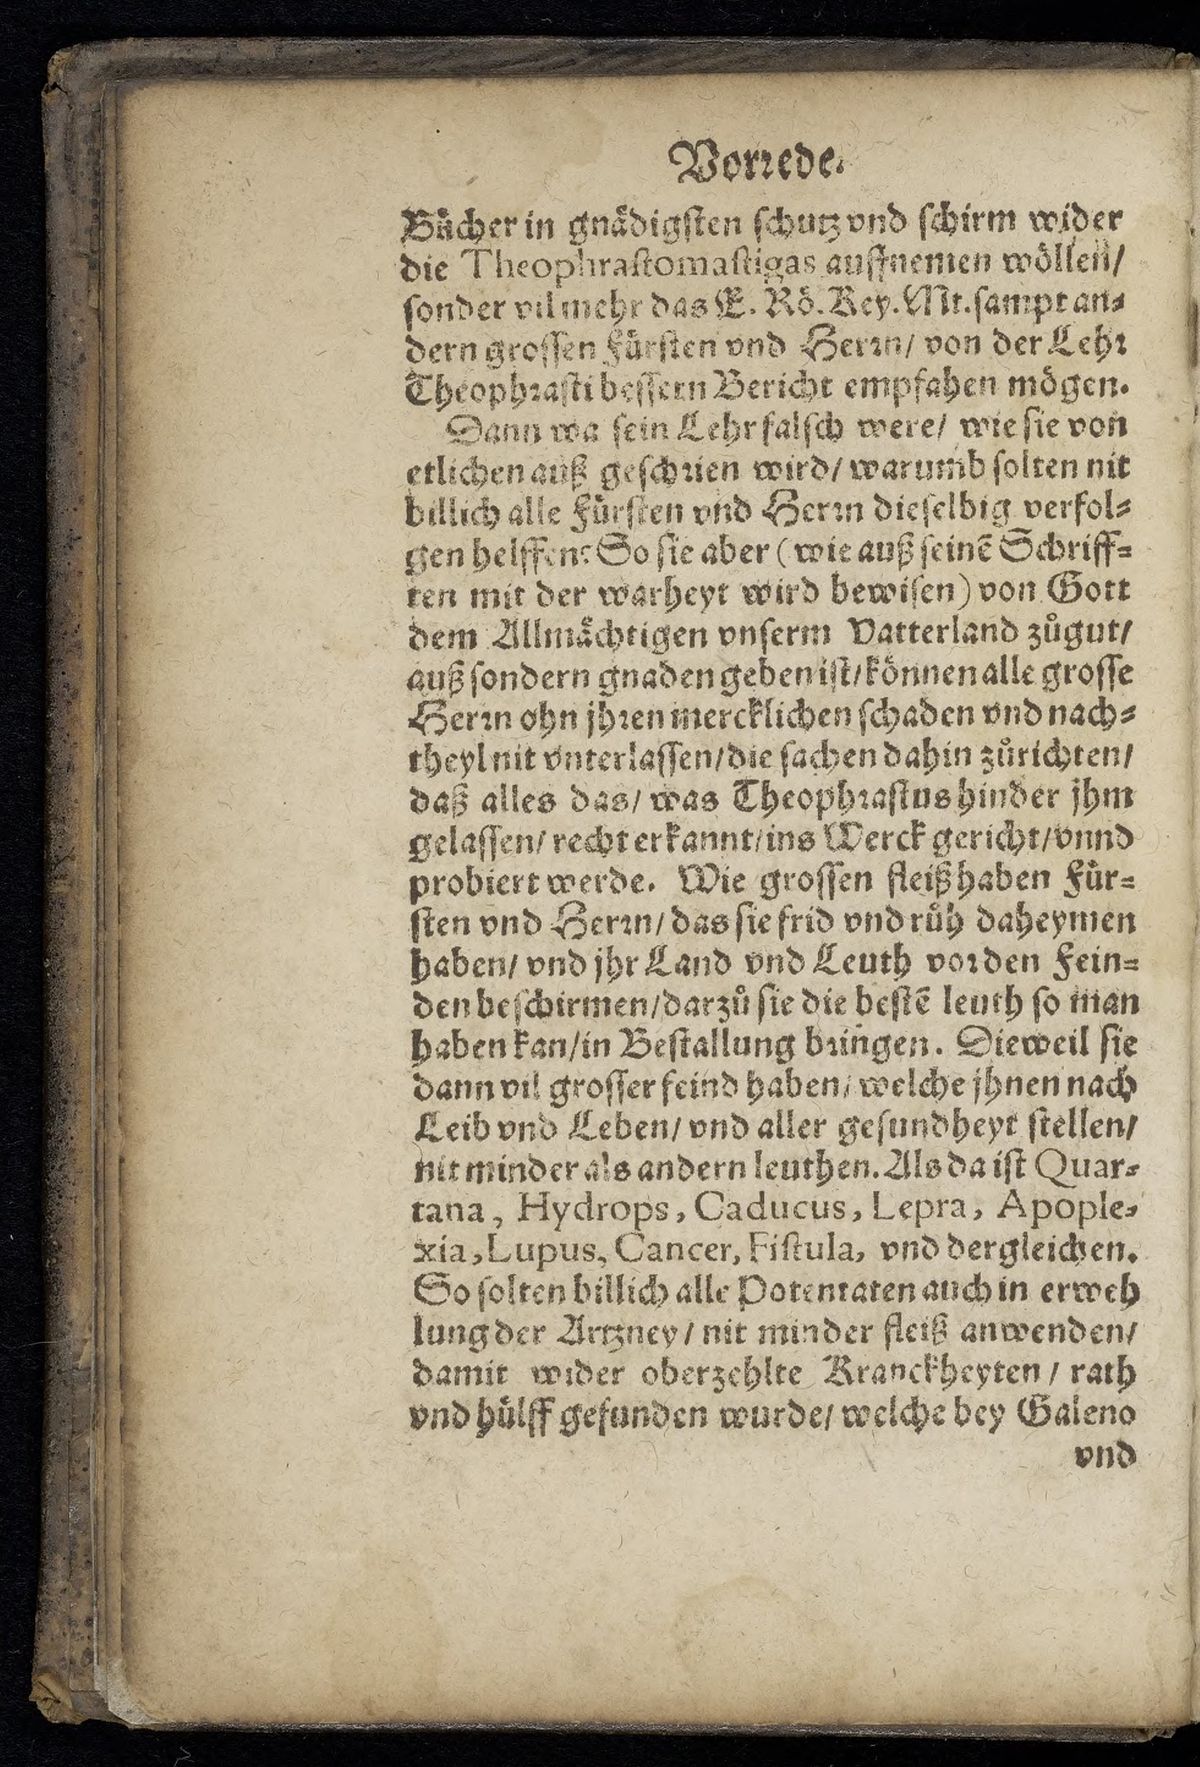 Vorrede.
Bücher in gnädigsten schutz vnd schirm wider
die Theophrastomastigas auffnemen wöllen/
sonder vil mehr das E. Rö. Key. Mt. sampt an⸗
dern grossen Fürsten vnd Herrn/ von der Lehr
Theophrasti bessern Bericht empfahen mögen.
Dann wa sein Lehr falsch were/ wie sie von
etlichen auß geschrien wird/ warumb solten nit
billich alle Fürsten vnd Herrn dieselbig verfol⸗
gen helffen? So sie aber (wie auß seinẽ Schriff⸗
ten mit der warheyt wird bewisen) von Gott
dem Allmächtigen vnserm Vatterland zůgut/
auß sondern gnaden geben ist/ können alle grosse
Herrn ohn jhren mercklichen schaden vnd nach⸗
theyl nit vnterlassen/ die sachen dahin zůrichten/
daß alles das/ was Theophrastus hinder jhm
gelassen/ recht erkannt/ ins Werck gericht/ vnnd
probiert werde. Wie grossen fleiß haben Für⸗
sten vnd Herrn/ das sie frid vnd růh daheymen
haben/ vnd jhr Land vnd Leuth vor den Fein⸗
den beschirmen/ darzů sie die bestẽ leuth so man
haben kan/ in Bestallung bringen. Dieweil sie
dann vil grosser feind haben/ welche jhnen nach
Leib vnd Leben/ vnd aller gesundheyt stellen/
nit minder als andern leuthen. Als da ist Quar⸗
tana, Hydrops, Caducus, Lepra, Apople⸗
xia, Lupus, Cancer, Fistula, vnd dergleichen.
So solten billich alle Potentaten auch in erweh
lung der Artzney/ nit minder fleiß anwenden/
damit wider oberzehlte Kranckheyten/ rath
vnd hülff gefunden wurde/ welche bey Galeno
vnd